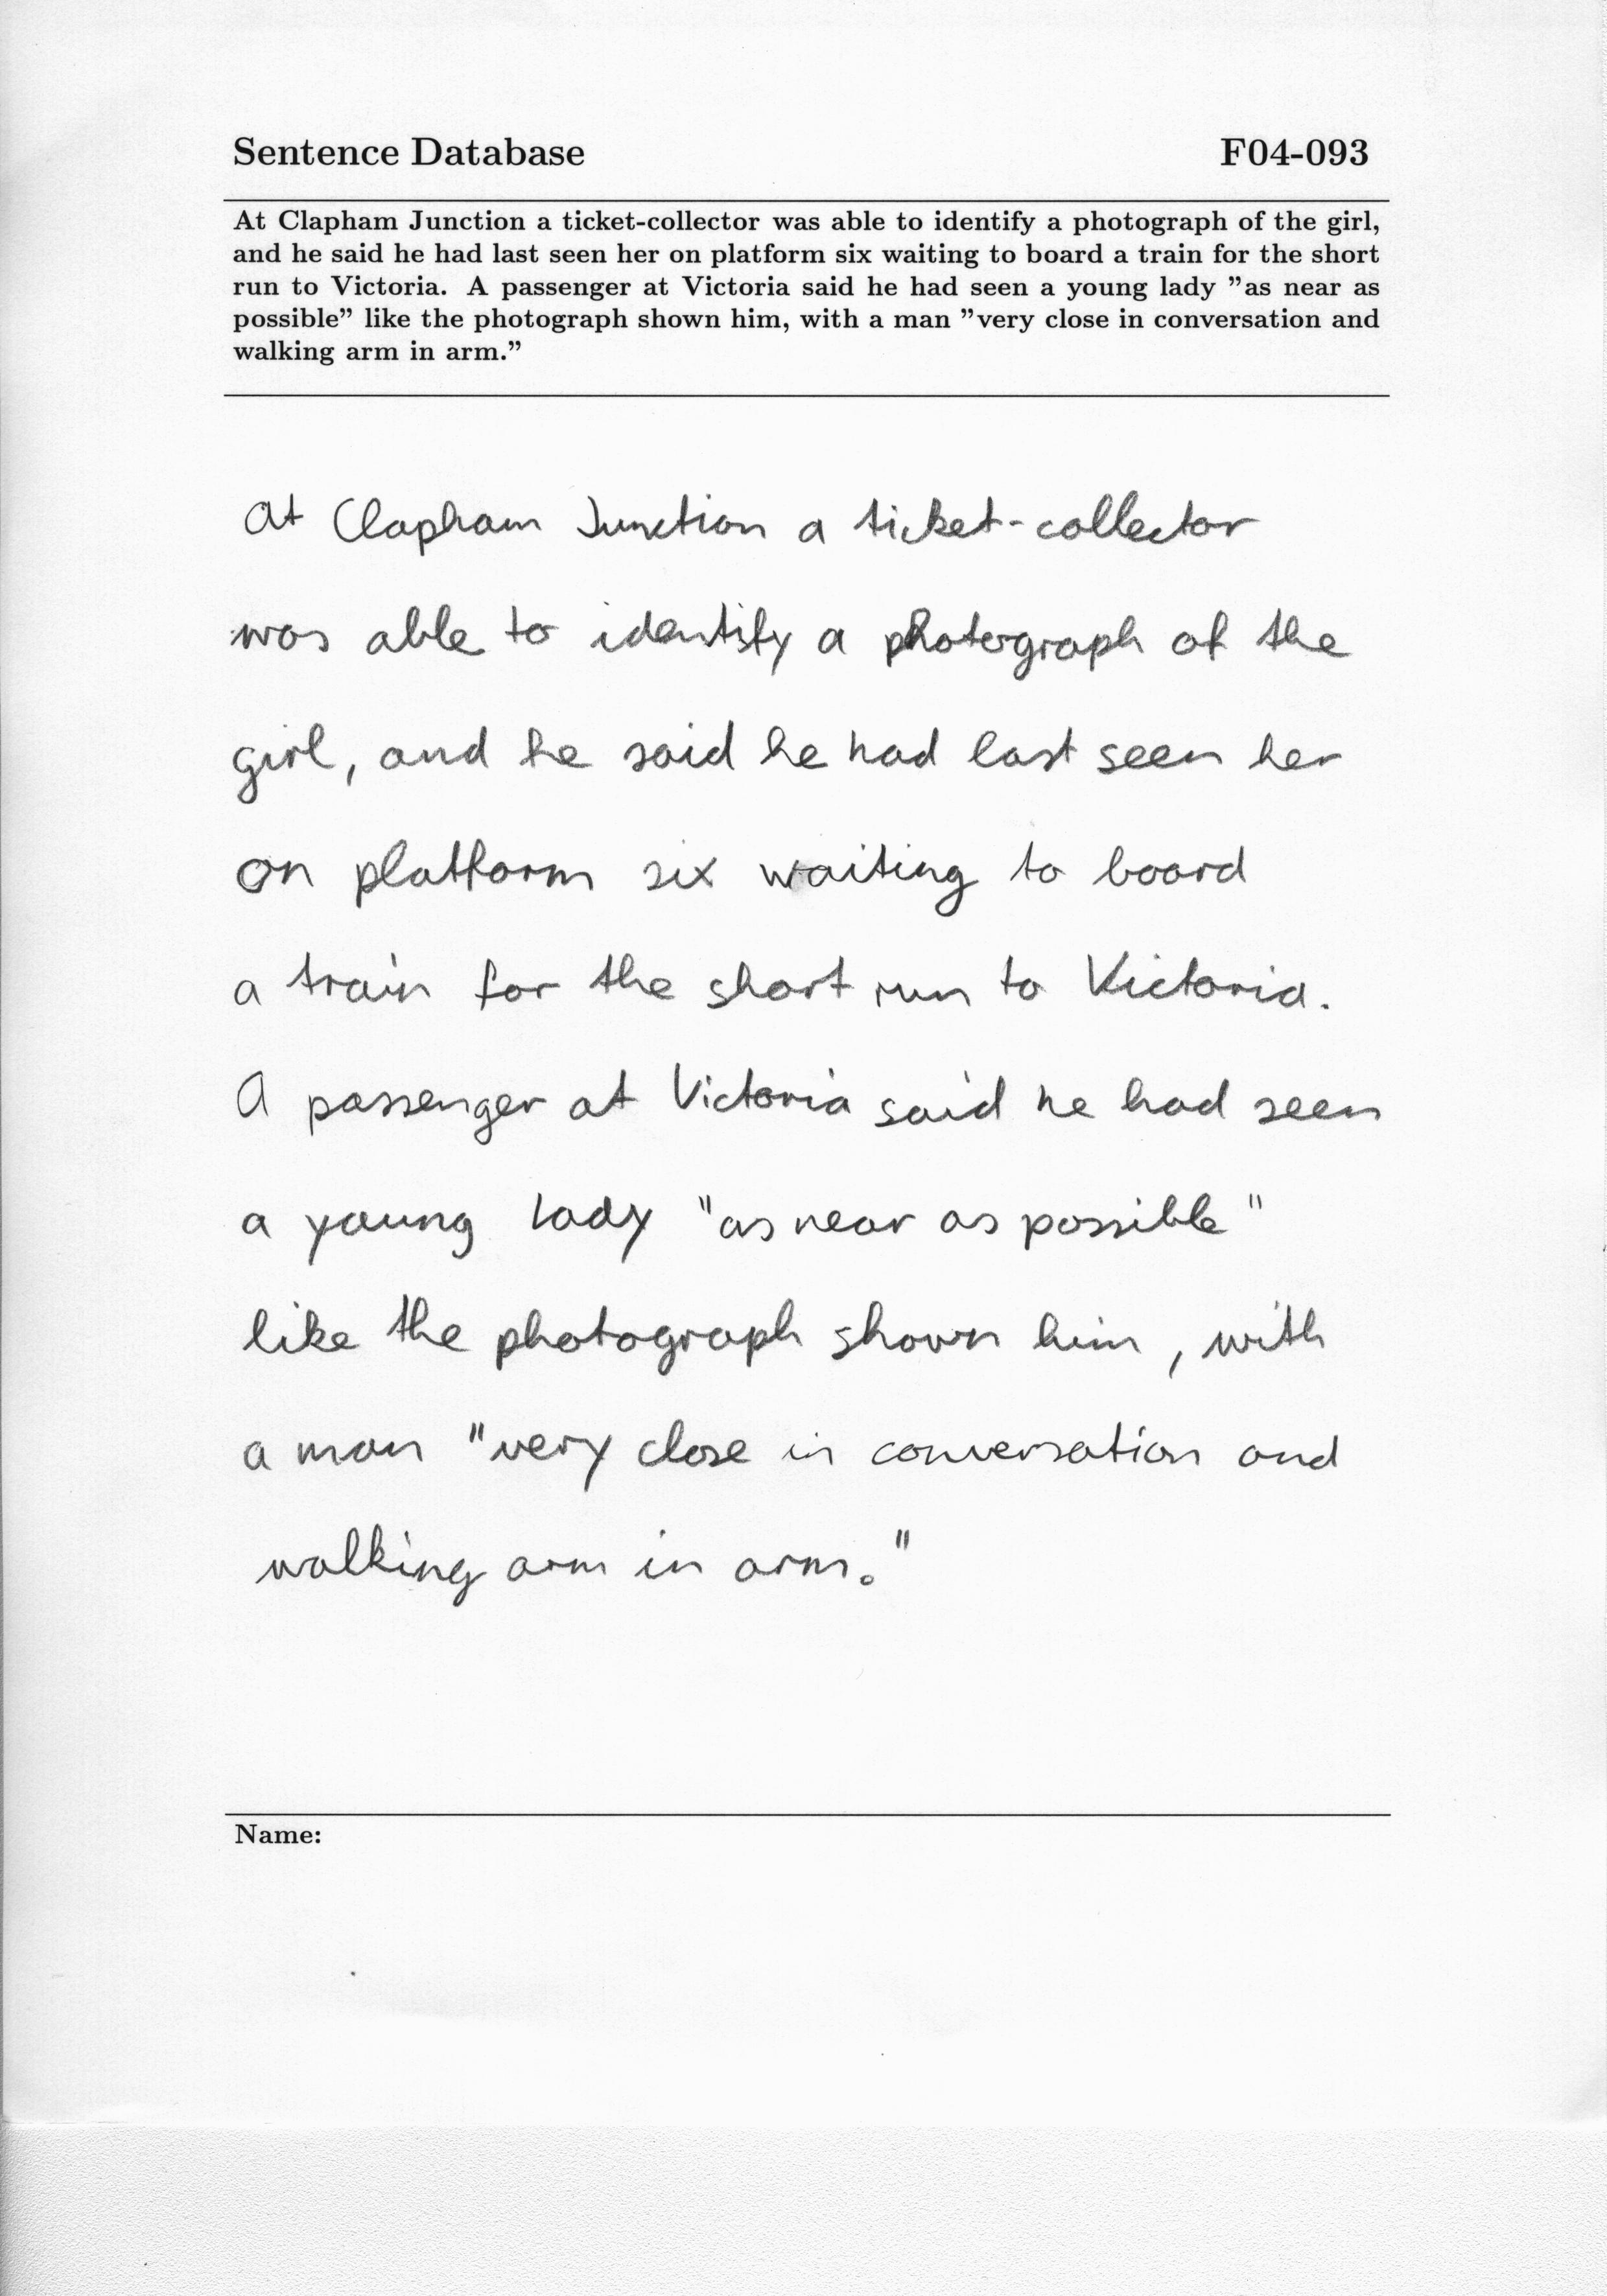 Sentence Database F04-093
At Clapham Junction a ticket-collector was able to identify a photograph of the girl,
and he said he had last seen her on platform six waiting to board a train for the short
run to Victoria. A passenger at Victoria said he had seen a young lady ”as near as
possible” like the photograph shown him, with a man ”very close in conversation and
walking arm in arm.”
At Clapham Junction a ticket-collector
was able to identify a photograph of the
girl, and he said he had last seen her
on platform six waiting to board
a train for the short run to Victoria.
A passenger at Victoria said he had seen
a young lady "as near as possible"
like the photograph shown him, with
a man "very close in conversation and
walking arm in arm."
Name: